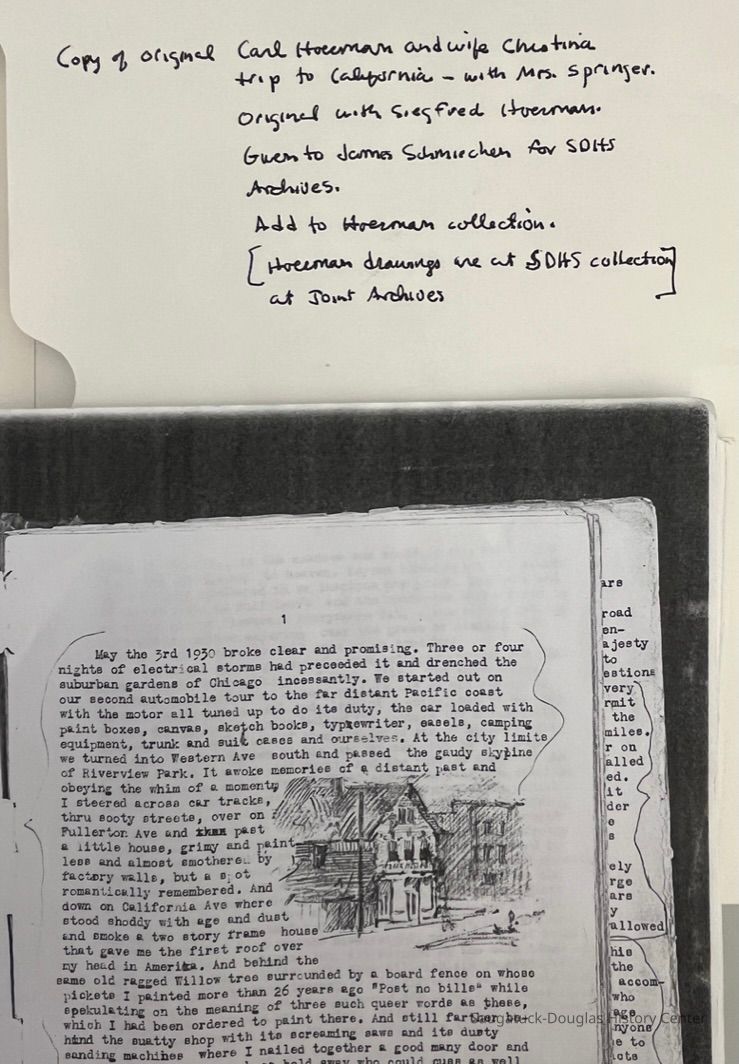 Copy of original Carl Hoerman and wife Christina
trip to California - with Mrs. Springer.
Original with Siegfred Hoerman.
Given to James Schmiechen for SDHS
Archives.
Add to Hoerman collection.
[Hoerman drawings are at SDHS collection]
at Joint Archives
1
May the 3rd 1930 broke clear and promising. Three or four
nights of electrical storms had preceeded it and drenched the
suburban gardens of Chicago incessantly. We started out on
our second automobile tour to the far distant Pacific coast
with the motor all tuned up to do its duty, the car loaded with
paint boxes, canvas, sketch books, typewriter, easels, camping
equipment, trunk and suit cases and ourselves. At the city limits
we turned into Western Ave south and passed the gaudy skyline
of Riverview Park. It awoke memories of a distant past and
obeying the whim of a moment,
I steered across car tracks,
thru sooty streets, over on
Fullerton Ave and past
a little house, grimy and paint
less and almost smothered by
factory walls, but a spot
romantically remembered. And
down on California Ave where
stood shoddy with age and dust
and smoke a two story frame house
that gave me the first roof over
my head in America. And behind the
same old ragged Willow tree surrounded by a board fence on whose
pickets I painted more than 26 years ago "Post no bills" while
spekulating on the meaning of three such queer words as these,
which I had been ordered to paint there. And still farther be-
hind the smutty shop with its screaming saws and its dusty
sanding machines where I nailed together a good many door and
who could guess as well
are
road
en-
ajesty
to
estions
very
rmit
the
miles.
r on
alled
ed.
it
der
e
s
ely
rge
ars
y
allowed
his
the
accom-
who
age
nyone
e to
lots
Saugatuck-Douglas History Center